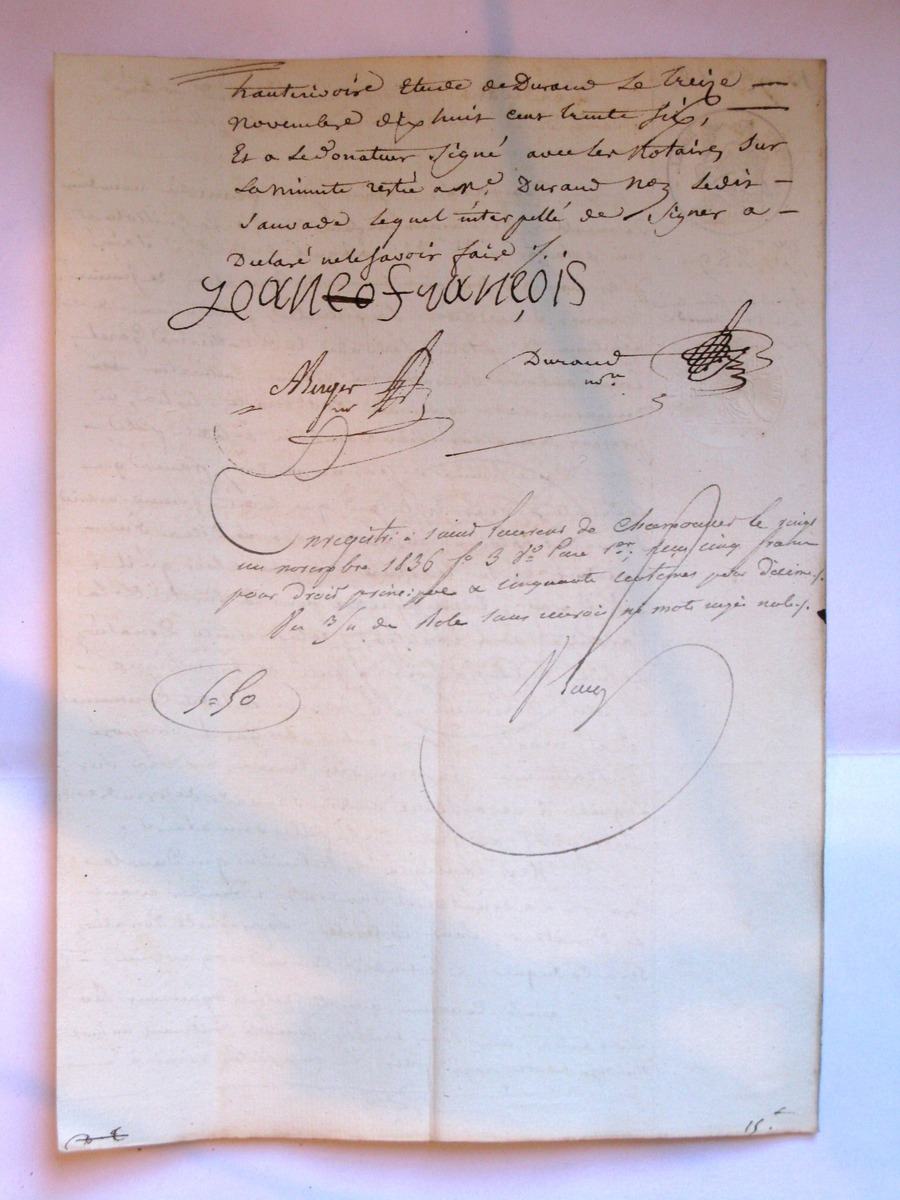 hauterivoire Etude de Durand Le treize —
Novembre dix huit cent trente six,
Et a Le Donateur signé avec les Notaires sur
La Minute restée a Me. Durand Non Ledit —
Sauvade lequel interpellé de signer a —
Declaré ne le savoir faire /.
Jean François
Berger
nre
Durand
nre
Enregistré à saint Laurent de Chamousset le vingt
un novembre 1836 fo 3 Vo Case 1re. Reçu cinq francs
pour droit principal & cinquante centimes pour décime /.
de Role sans renvoi ni mots rayés nuls /.
5=50
15.